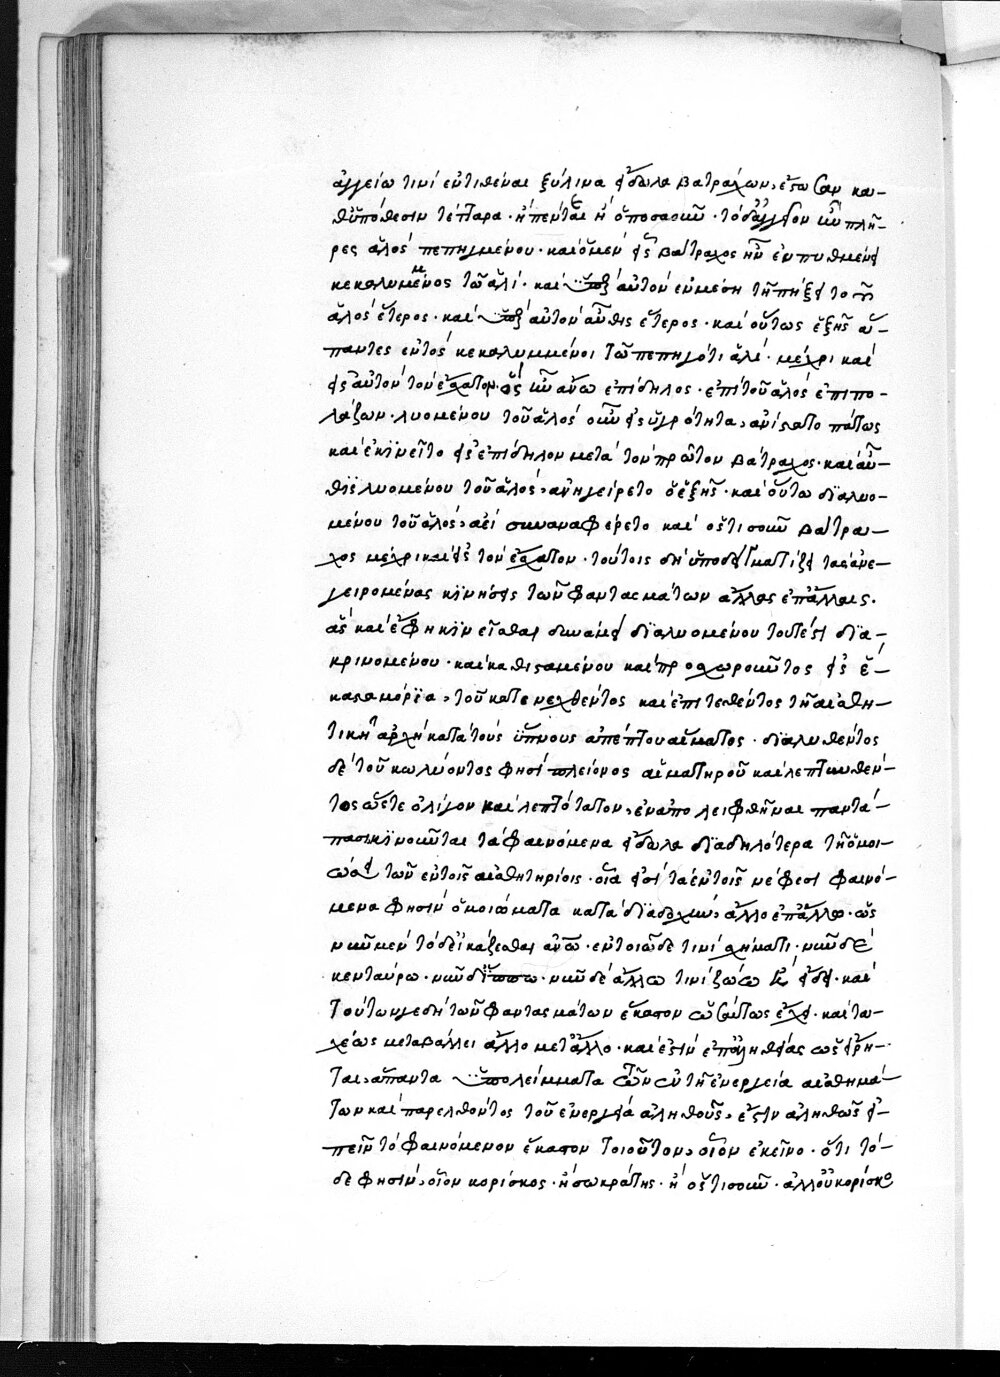 ἀγγείω τινί ἐντιθέναι ξύλινα εἴδωλα βατράχων, ἔστωσαν κα-
θ' ὑπόθεσιν τέτταρα· ἢ πέντε ἢ ὁποσαοῦν· τὸ δ' ἀγγεῖον οὖν πλῆ-
ρες ἁλὸς πεπηγμένου· καὶ ὁ μὲν εἷς βάτραχος ἦν ἐν πυθμένι
κεκαλυμμένος τῶ ἁλί· καὶ ὑπὲρ αὐτὸν ἐν μέση τῆ πήξει τοῦ
ἁλὸς ἕτερος· καὶ ὑπὲρ αὐτὸν αὖθις ἕτερος· καὶ οὕτως ἑξῆς ἅ-
παντες ἐντὸς κεκαλυμμένοι τῶ πεπηγότι ἁλί· μέχρι καὶ
εἰς αὐτὸν τὸν ἔσχατον· ὃς οὖν ἄνω ἐπίδηλος· ἐπὶ τοῦ ἁλὸς ἐπιπο-
λάζων· λυομένου τοῦ ἁλὸς οὖν εἰς ὑγρότητα, ἀνίστατο πάντως
καὶ ἐκινεῖτο εἰς ἐπίδηλον μετὰ τὸν πρῶτον βάτραχος· καὶ αὖ-
θις λυομένου τοῦ ἁλὸς, ἀνηγείρετο ὁ ἑξῆς· καὶ οὕτω διαλυο-
μένου τοῦ ἁλὸς, ἀεὶ συνανεφέρετο καὶ ὅστισοῦν βάτρα-
χος μέχρι καὶ εἰς τὸν ἔσχατον· τούτοις δὴ ὑποδειγματίζει τὰς ἀνε-
γειρομένας κινήσεις τῶν φαντασμάτων ἄλλας ἐπ' ἄλλαις·
ἃς καὶ ἔφη κινεῖσθαι δυνάμει διαλυομένου τουτέστι δια-
κρινομένου· καὶ καθισταμένου καὶ προχωροῦντος εἰς ἕ-
καστα μόρια, τοῦ κατενεχθέντος καὶ ἐπιτεθέντος τῆ αἰσθη-
τικῆ ἀρχῆ κατὰ τοὺς ὕπνους ἀπέπτου αἵματος· διαλυθέντος
δὲ τοῦ κωλύοντος φησὶ πλείονος αἱματηροῦ καὶ λεπτυνθέν-
τος ὥστε ὀλίγον καὶ λεπτότατον, ἐναπολειφθῆναι παντά-
πασι κινοῦνται τὰ φαινόμενα εἴδωλα διαδηλότερα τῆ ὁμοι-
ώσει τῶν ἐν τοῖς αἰσθητηρίοις· οἷά εἰσι τὰ ἐν τοῖς νέφεσι φαινό-
μενα φησὶν ὁμοιώματα κατὰ διαδοχὴν, ἄλλο ἐπ' ἄλλω· ὡς
νῦν μὲν τόδε εἰκάζεσθαι ἄνω· ἐν τοιῶδε τινὶ σχήματι· νῦν δὲ
κενταύρω· νῦν δ' ἵππω· νῦν δὲ ἄλλω τινὶ ζώω κατ' εἶδει· καὶ
τούτων γε δὴ τῶν φαντασμάτων ἕκαστον ὡσαύτως ἔχει· καὶ τα-
χέως μεταβάλλει ἄλλο μετ' ἄλλο· καὶ ἔστιν ἐπαληθείας ὡς εἴρη-
ται, ἅπαντα ὑπολείμματα τῶν ἐν τῆ ἐνεργεία αἰσθημά-
των καὶ παρελθόντος τοῦ ἐνεργεία ἀληθοῦς, ἔστιν ἀληθῶς εἰ-
πεῖν τὸ φαινόμενον ἕκαστον τοιοῦτον, οἷον ἐκεῖνο· ὅτι τό-
δε φησὶν, οἷον κορίσκος· ἢ σωκράτης· ἢ ὅστισοῦν· ἀλλ' οὐ κορίσκο